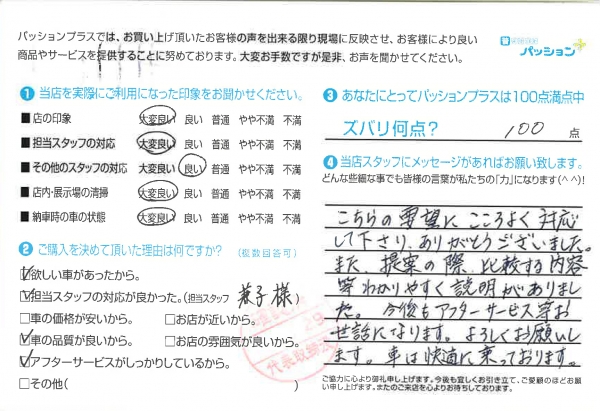 パッションプラスでは、お買い上げ頂いたお客様の声を出来る限り現場に反映させ、お客様により良い
商品やサービスを提供することに努めております。大変お手数ですが是非、お声を聞かせてください。
パッション
1 当店を実際にご利用になった印象をお聞かせください。
■ 店の印象 大変良い 良い 普通 やや不満 不満
■ 担当スタッフの対応 大変良い 良い 普通 やや不満 不満
■ その他のスタッフの対応 大変良い 良い 普通 やや不満 不満
■ 店内・展示場の清掃 大変良い 良い 普通 やや不満 不満
■ 納車時の車の状態 大変良い 良い 普通 やや不満 不満
2 ご購入を決めて頂いた理由は何ですか? (複数回答可)
☑欲しい車があったから。
☑担当スタッフの対応が良かった。(担当スタッフ 兼子様)
□車の価格が安いから。 □お店が近いから。
☑車の品質が良いから。 □お店の雰囲気が良いから。
☑アフターサービスがしっかりしているから。
□その他(
3 あなたにとってパッションプラスは100点満点中
ズバリ何点? 100 点
4 当店スタッフにメッセージがあればお願い致します。
どんな些細な事でも皆様の言葉が私たちの「力」になります(^^)!
こちらの要望にこころよく対応
して下さり、ありがとうございました。
また、提案の際、比較する内容
等わかりやすく説明がありまし
た。今後もアフターサービス等お
世話になります。よろしくお願いし
ます。車は快適に乗っております。
ご協力に心より御礼申し上げます。今後も宜しくお引き立て、ご愛顧のほどお願
い申し上げます。またのご来店を心よりお待ちしております。